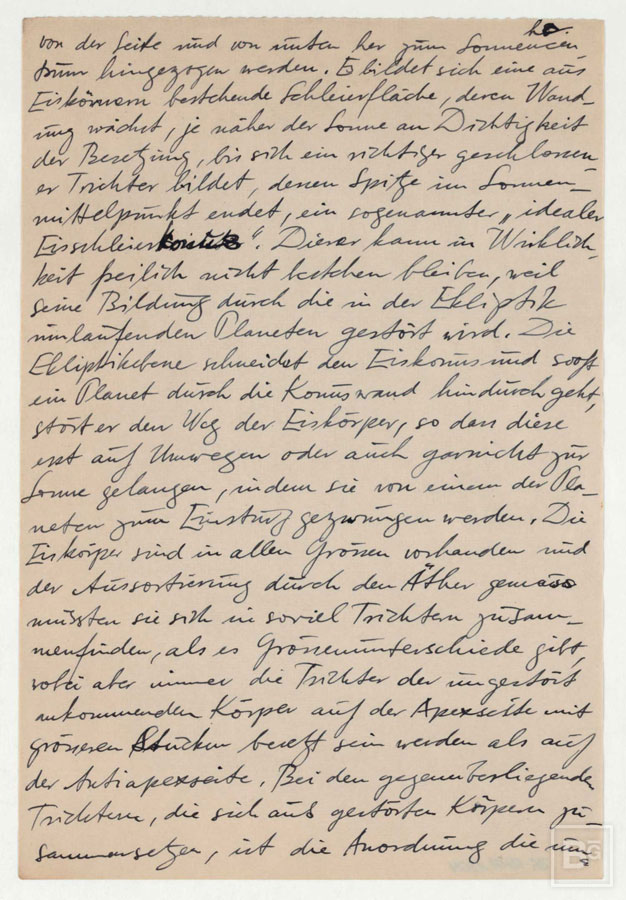 von der Seite und von unten her zum Sonnenzen
trum hingezogen werden. Es bildet sich eine aus
Eiskörnern bestehende Schleierfläche, deren Wand-
ung wächst, je näher der Sonne an Dichtigkeit
der Besetzung, bis sich ein richtiger geschlossen-
er Trichter bildet, dessen Spitze im Sonnen-
mittelpunkt endet, ein sogenannter „idealer
Eisschleierkonus". Dieser kann in Wirklich-
keit freilich nicht bestehen bleiben, weil
seine Bildung durch die in der Ekliptik
umlaufenden Planeten gestört wird. Die
Ekliptikebene schneidet den Eiskonus und sooft
ein Planet durch die Konuswand hindurch geht,
stört er den Weg der Eiskörper, so dass diese
erst auf Umwegen oder auch garnicht zur
Sonne gelangen, indem sie von einem der Pla-
neten zum Einsturz gezwungen werden. Die
Eiskörper sind in allen Grössen vorhanden und
der Aussortierung durch den Äther gemäss
müssten sie sich in soviel Trichtern zusam-
menfinden, als es Grössenunterschiede gibt,
wobei aber immer die Trichter der ungestört
ankommenden Körper auf der Apexseite mit
grösseren Stücken besetzt sein werden als auf
der Antiapexseite. Bei den gegenüberliegenden
Trichtern, die sich aus gestörten Körpern zu-
sammensetzen, ist die Anordnung die um